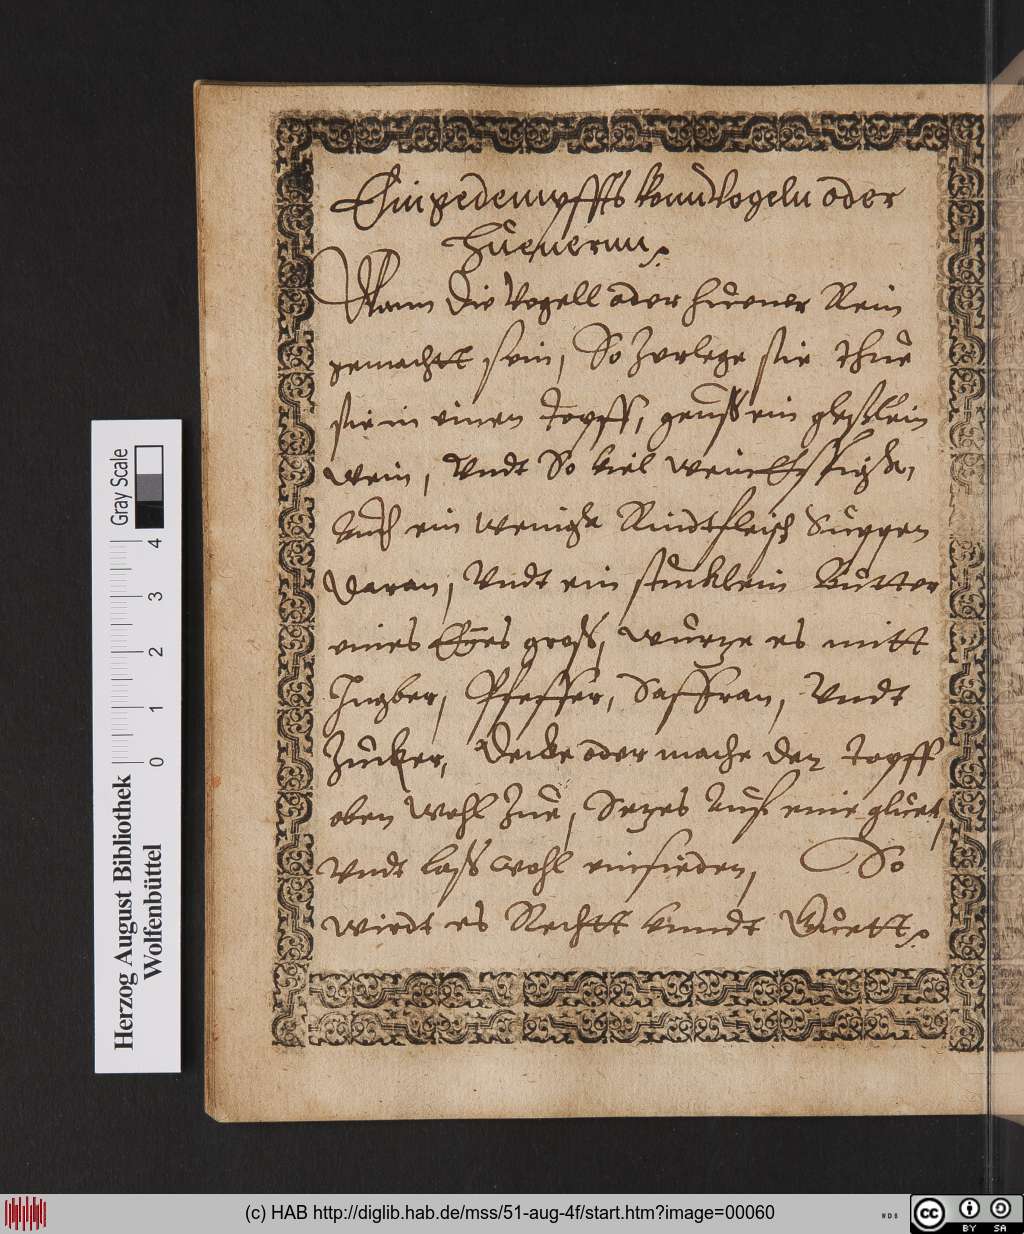 Ein gedempffts vonn Vogeln oder
Huenernn
Wann die Vogell oder huener Rein
gemachtt sein, So Zerlege sie thue
sie in einen topff, geuß ein gleßlein
wein, Vndt So viel weinEssigk,
Auch ein wenigk Rindtfleisch Suppen
daran, Vndt ein stucklein Butter
eines Eyes groß, wurze es mitt
Ingber, Pfeffer, Saffran, Vndt
Zucker, decke oder mache den topff
oben wohl Zue, Sezes auf eine gluet,
Vndt laß wohl einsieden, So
wirdt es Rechtt vnndt Guett
Gray Scale
4
3
2
1
0
Herzog August Bibliothek
Wolfenbüttel
(c) HAB http://diglib.hab.de/mss/51-aug-4f/start.htm?image=00060
WDB
cc BY SA